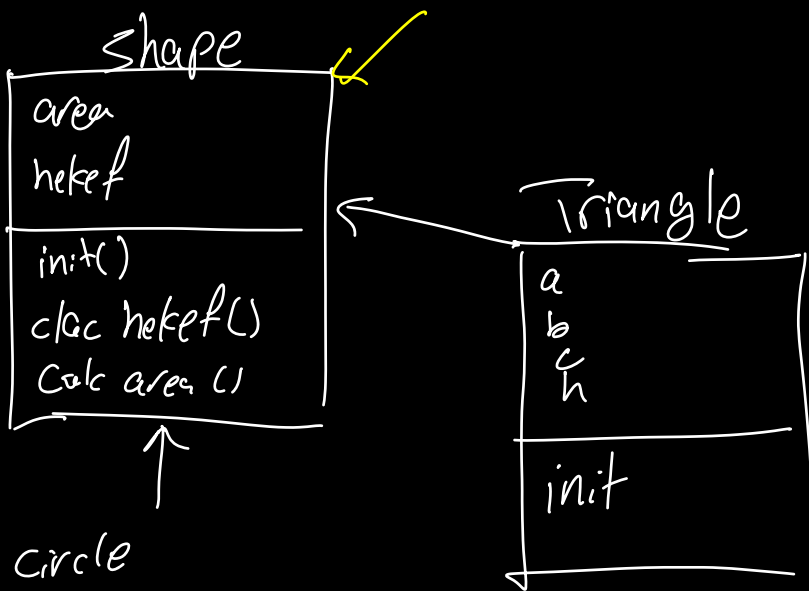 shape
area
hekef
init()
clac hekef()
Calc area ()
circle
Triangle
a
b
c
h
init